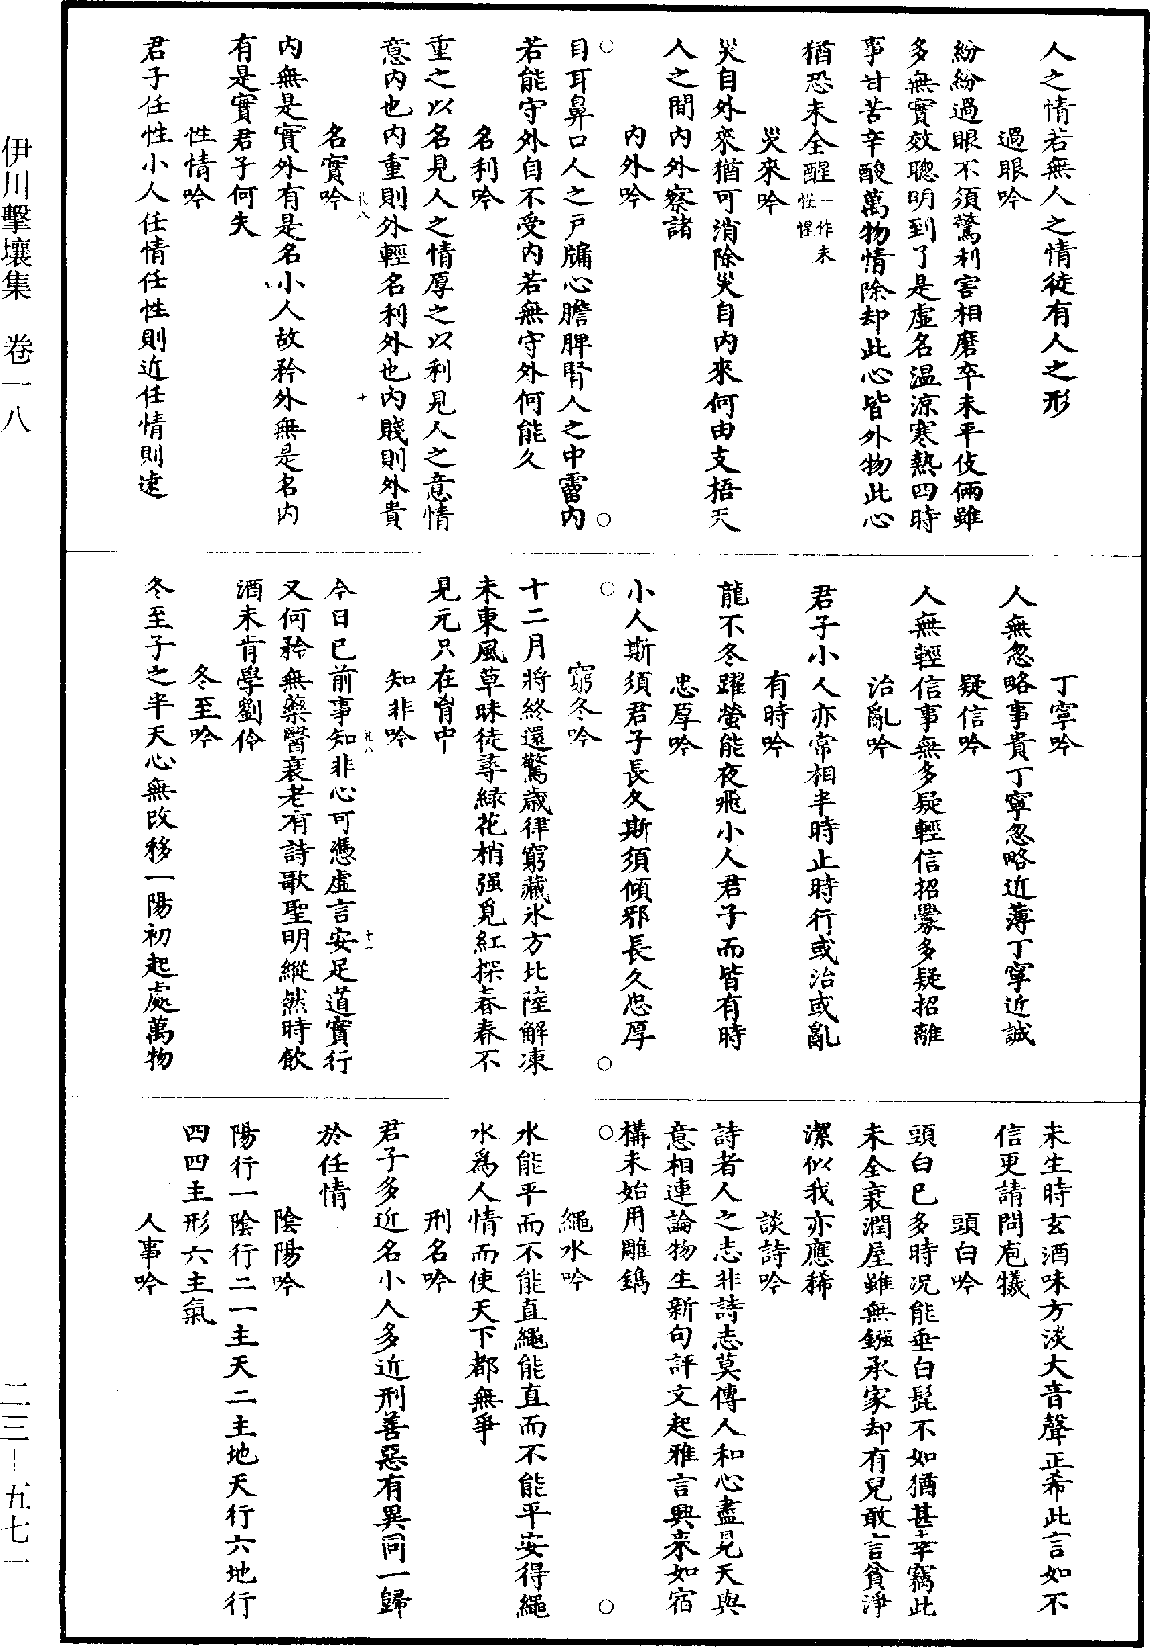 人之情若無人之情徒有人之形
過眼吟
紛紛過眼不須驚利害相磨卒未平伎倆雖
多無實效聰明到了是虛名温涼寒熱四時
事甘苦辛酸萬物情除却此心皆外物此心
猶恐未全醒一作未性惺
災來吟
災自外來猶可消除災自内來何由支梧天
人之間内外察諸
内外吟
目耳鼻口人之户牖心膽脾腎人之中霤内
若能守外自不受内若無守外何能久
名利吟
重之以名見人之情厚之以利見人之意情
意内也内重則外輕名利外也内賤則外貴
名實吟
内無是實外有是名小人故矜外無是名内
有是實君子何失
性情吟
君子任性小人任情任性則近任情則遠
丁寧吟
人無忽略事貴丁寧忽略近薄丁寧近誠
疑信吟
人無輕信事無多疑輕信招釁多疑招離
治亂吟
君子小人亦常相半時止時行或治或亂
有時吟
龍不冬躍螢能夜飛小人君子而皆有時
忠厚吟
小人斯須君子長久斯須傾邪長久忠厚
窮冬吟
十二月將終還驚歲律窮藏氷方北陸解凍
未東風草昧徒尋緑花梢强覓紅探春春不
見元只在胷中
知非吟
今日已前事知非心可憑虛言安足道實行
又何矜無藥醫衰老有詩歌聖明縱然時飲
酒未肯學劉伶
冬至吟
冬至子之半天心無改移一陽初起處萬物
未生時玄酒味方淡大音聲正希此言如不
信更請問庖犧
頭白吟
頭白已多時况能垂白髭不如猶甚幸竊此
未全衰潤屋雖無鏹承家却有兒敢言貧淨
潔似我亦應稀
談詩吟
詩者人之志非詩志莫傳人和心盡見天與
意相連論物生新句評文起雅言興來如宿
構未始用雕鐫
繩水吟
水能平而不能直繩能直而不能平安得繩
水爲人情而使天下都無爭
刑名吟
君子多近名小人多近刑善惡有異同一歸
於任情
陰陽吟
陽行一陰行二一主天二主地天行六地行
四四主形六主氣
人事吟
伊川擊壤集　卷一八
二三—五七一